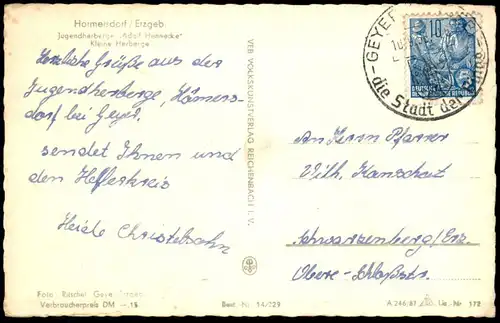 Hormersdorf / Erzgeb.
Jugendherberge „Adolf Hennecke"
Kleine Herberge
Herzliche Grüße aus der
Jugendherberge, Hormers-
dorf bei Geyer.
sendet Ihnen und
den Helferkreis
Heide
VEB VOLKSKUNSTVERLAG REICHENBACH I. V.
GEYER
die Stadt der
10
DEUTSCHE DEMOKRATISCHE REPUBLIK
An Herrn Pfarrer
Schwarzenberg/Erz.
Obere-Schloßstr.
Foto: Ritschel Geyer
Verbraucherpreis DM —.15
Best.-Nr. 14/229
A 246/57
Liz.-Nr. 172